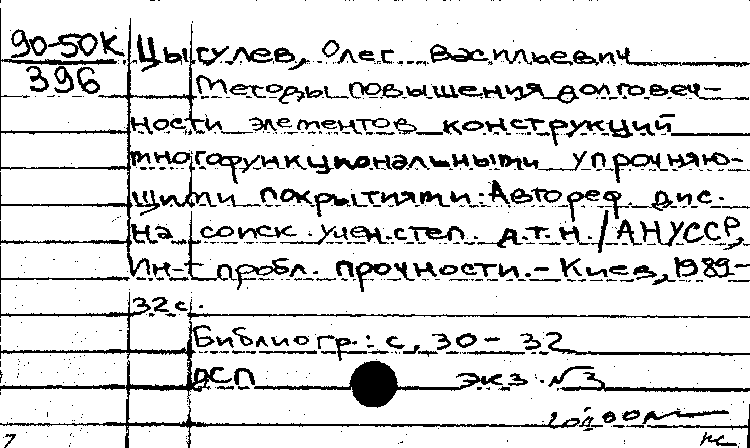 90-50К Цыгулев, Олег Васильевич
396
Методы повышения долговеч-
ности элементов конструкций
многофункциональными упрочняю-
щими покрытиями: Автореф дис.
на соиск. учен.степ. д.т.н./АН УССР,
Ин-т пробл. прочности.- Киев, 1989-
32 с.
Библиогр.: с. 30 - 32
ДСП экз. №3